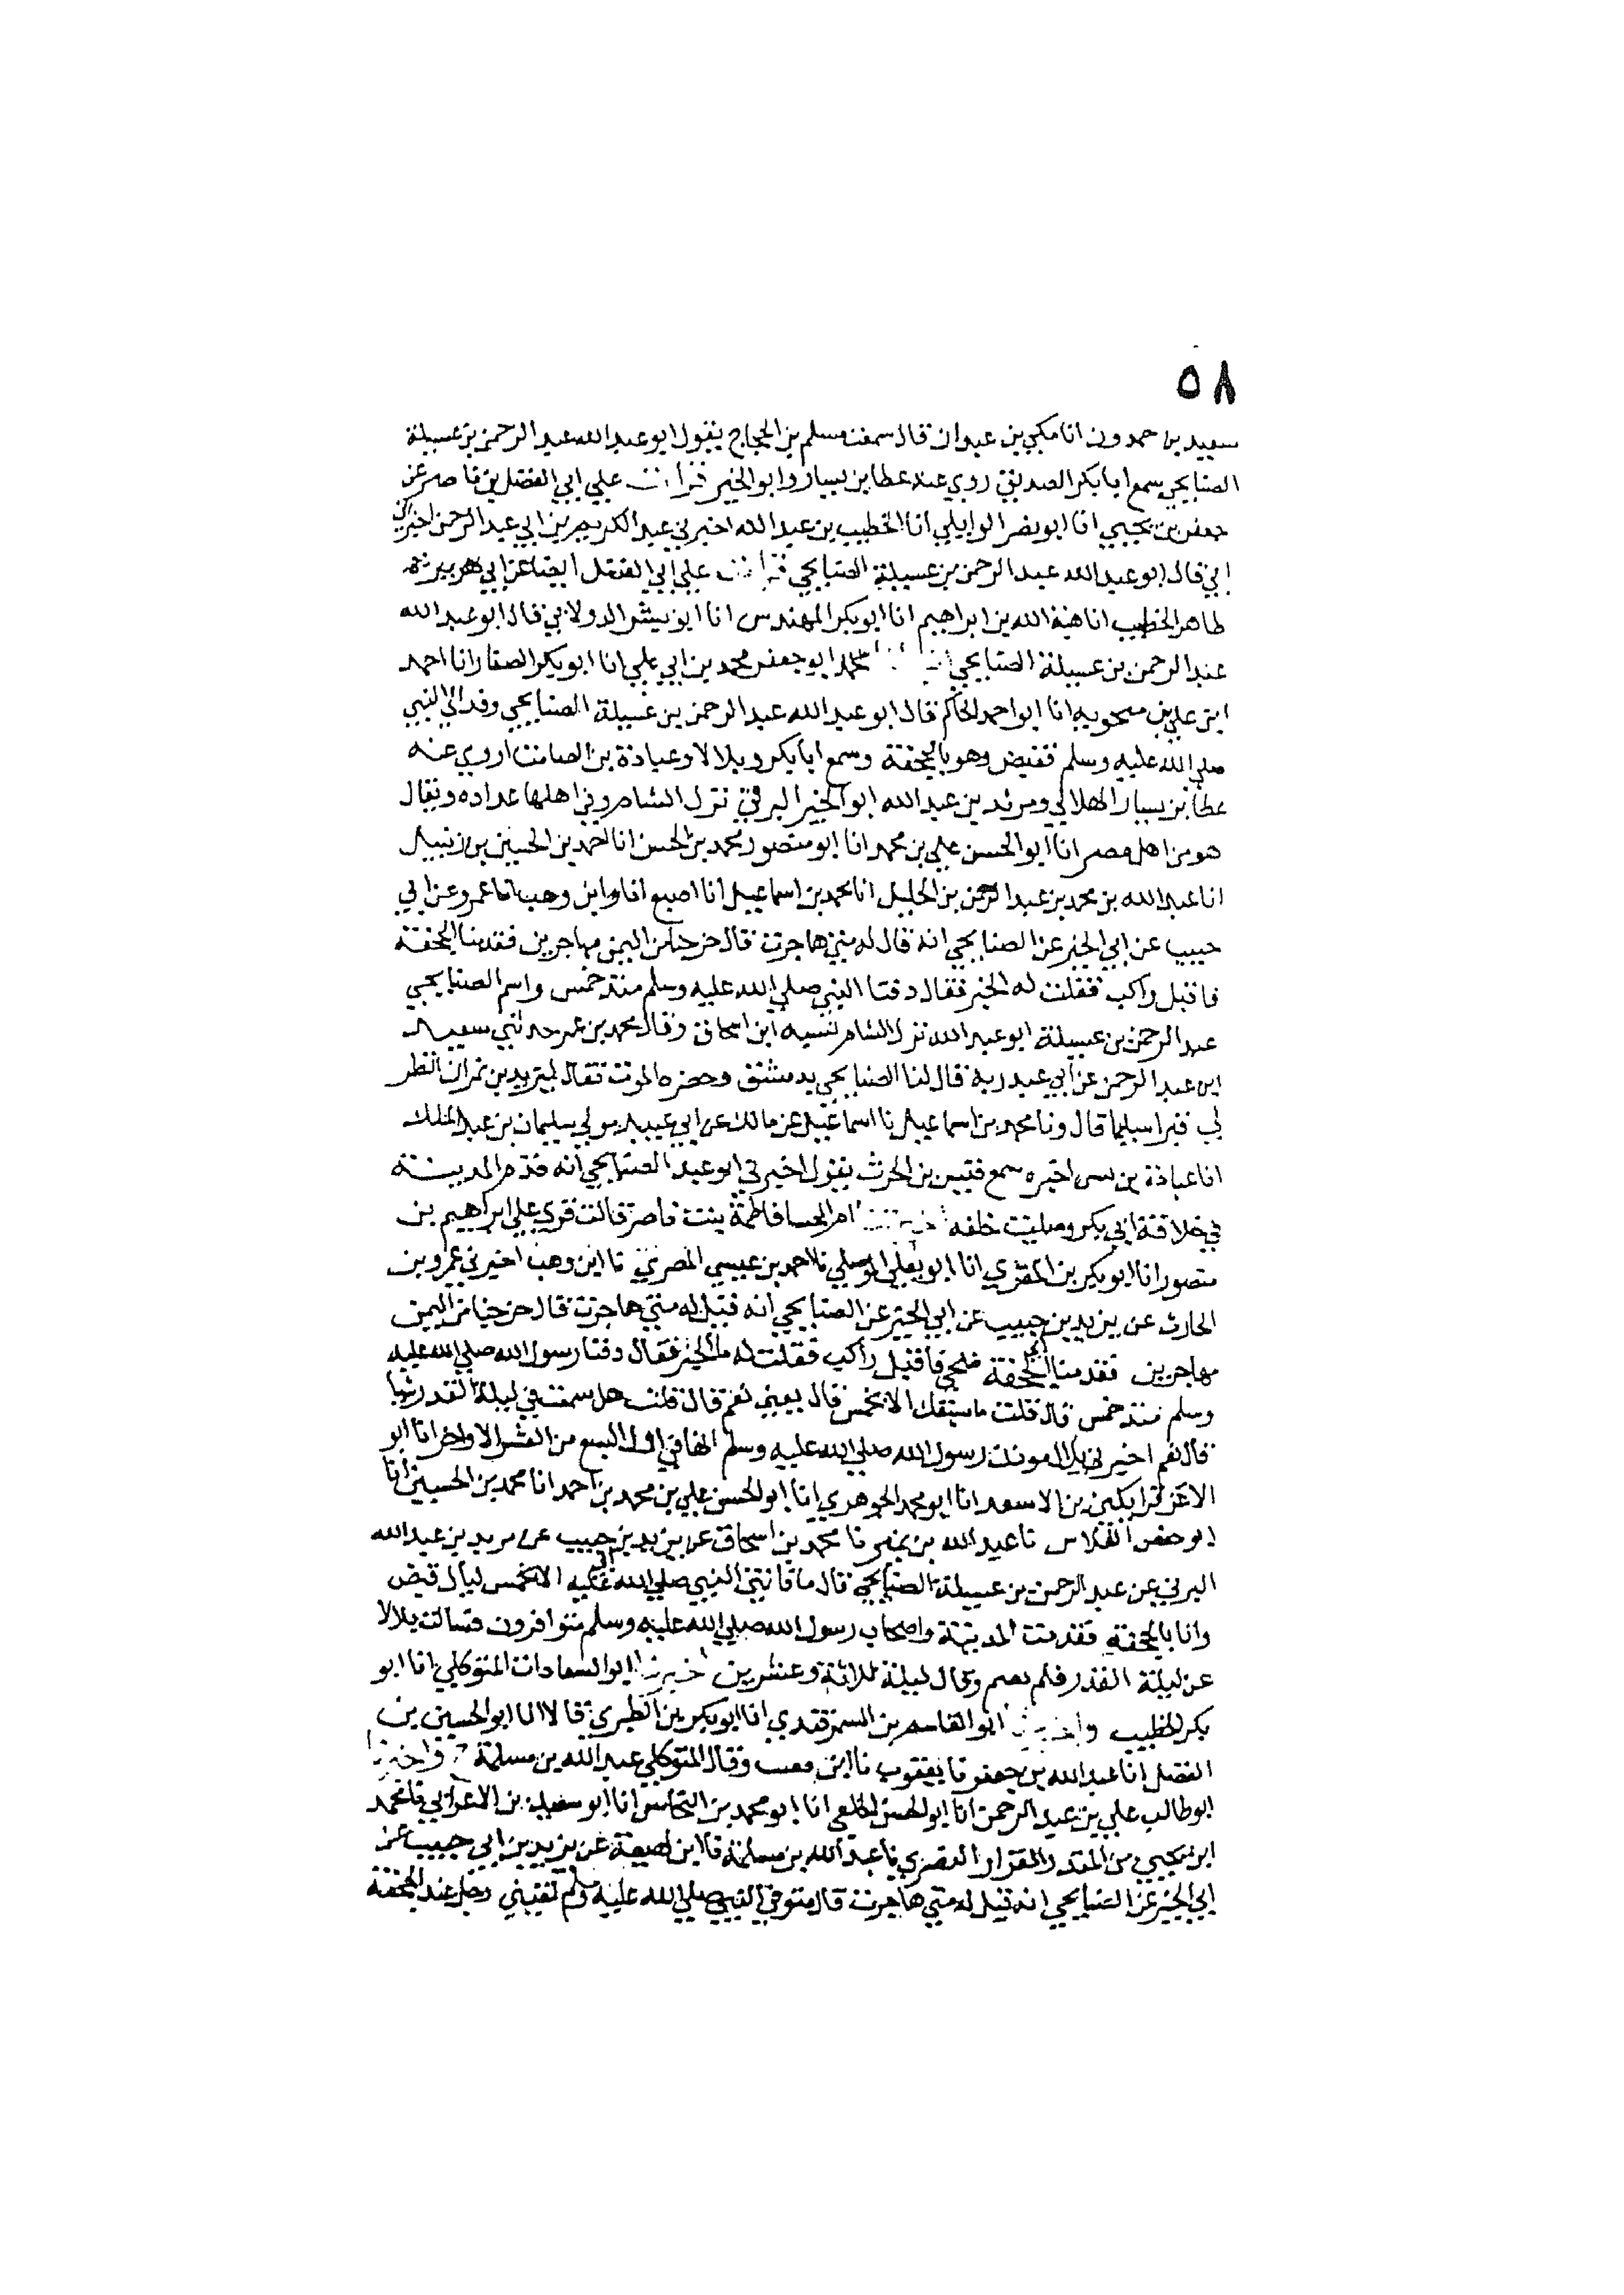 ٥٨
سعيد بن حمدون انا مكي بن عبدان قال سمعت مسلم بن الحجاج يقول ابو عبد الله عبد الرحمن بن عسيلة
الصنابحي سمع ابا بكر الصديق روي عنه عطا بن يسار وابو الخير قرأت علي ابي الفضل بن ناصر عن
جعفر بن يحيي انا ابو نصر الوايلي انا الخطيب بن عبد الله اخبرني عبد الكريم بن ابي عبد الرحمن اخبرني
ابي قال ابو عبد الله عبد الرحمن بن عسيلة الصنابحي قرأت علي ابي الفضل ايضا عن ابي
طاهر الخطيب انا هبة الله بن ابراهيم انا ابو بكر المهندس انا ابو بشر الدولابي قال ابو عبد الله
عبد الرحمن بن عسيلة الصنابحي ابو جعفر محمد بن ابي علي انا ابو بكر الصفار انا احمد
ابن علي بن منجويه انا ابو احمد الحاكم قال ابو عبد الله عبد الرحمن بن عسيلة الصنابحي وفد الي النبي
صلي الله عليه وسلم فقبض وهو بالجحفة وسمع ابا بكر وبلالا وعبادة بن الصامت اروي عنه
عطا بن يسار الهلالي ومرثد بن عبد الله ابو الخير اليزني نزل الشام وفي اهلها عداده ويقال
هو من اهل مصر انا ابو الحسن علي بن محمد انا ابو منصور محمد بن الحسن انا احمد بن الحسين بن زنبيل
انا عبد الله بن محمد بن عبد الرحمن بن الخليل انا محمد بن اسماعيل انا اصبغ انا ابن وهب انا عمرو عن ابي
حبيب عن ابي الخير عن الصنابحي انه قال له متي هاجرت قال خرجنا من اليمن مهاجرين فقدمنا الجحفة
فاقبل راكب فقلت له الخبر فقال دفنا النبي صلي الله عليه وسلم منذ خمس واسم الصنابحي
عبد الرحمن بن عسيلة ابو عبد الله نزل الشام نسبه ابن اسحاق وقال محمد بن عمر حدثني سعيد
ابن عبد الرحمن عن ابي عبد ربه قال لنا الصنابحي بدمشق وحضره الموت فقال ليزيد بن نمران انظر
لي قبرا سهلا قال ونا محمد بن اسماعيل نا اسماعيل عن مالك عن ابي عبيد مولي سليمان بن عبد الملك
انا عبادة بن نسي اخبره سمع قيس بن الحرث يقول اخبرني ابو عبد الصنابحي انه قدم المدينة
في خلافة ابي بكر وصليت خلفه ام المجتبا فاطمة بنت ناصر قالت قري علي ابراهيم بن
منصور انا ابو بكر بن المقري انا ابو يعلي الموصلي نا احمد بن عيسي المصري نا ابن وهب اخبرني عمرو بن
الحارث عن يزيد بن حبيب عن ابي الخير عن الصنابحي انه قيل له متي هاجرت قال خرجنا من اليمن
مهاجرين فقدمنا الجحفة ضحي فاقبل راكب فقلت له ما الخبر فقال دفنا رسول الله صلي الله عليه
وسلم منذ خمس قال قلت ما سبقك الا بخمس قال يعني نعم قال قلت هل سمعت في ليلة القدر شيا
قال نعم اخبرني بلال موذن رسول الله صلي الله عليه وسلم انها في اول السبع من العشر الاواخر انا ابو
الاعز قراتكين بن الاسعد انا ابو محمد الجوهري انا ابو الحسن علي بن محمد بن احمد انا محمد بن الحسين انا
ابو حفص الفلاس نا عبد الله بن نمير نا محمد بن اسحاق عن يزيد بن حبيب عن مرثد بن عبد الله
اليزني عن عبد الرحمن بن عسيلة الصنابحي قال ما فاتني النبي صلي الله عليه الا بخمس ليال قبض
وانا بالجحفة فقدمت المدينة واصحاب رسول الله صلي الله عليه وسلم متوافرون فسالت بلالا
عن ليلة القدر فلم يعتم وقال ليلة ثلاثة وعشرين اخبرنا ابو السعادات المتوكلي انا ابو
بكر الخطيب واخبرنا ابو القاسم بن السمرقندي انا ابو بكر بن الطبري قالا انا ابو الحسين بن
الفضل انا عبد الله بن جعفر نا يعقوب نا ابن قعنب وقال المتوكلي عبد الله بن مسلمة ح واخبرنا
ابو طالب علي بن عبد الرحمن انا ابو الحسن الخلعي انا ابو محمد بن النحاس انا ابو سعيد بن الاعرابي نا محمد
ابن يحيي بن المنذر القزاز البصري نا عبد الله بن مسلمة نا ابن لهيعة عن يزيد بن ابي حبيب عن
ابي الخير عن الصنابحي انه قيل له متي هاجرت قال متوفي النبي صلي الله عليه وسلم لقيني رجل عند الجحفة